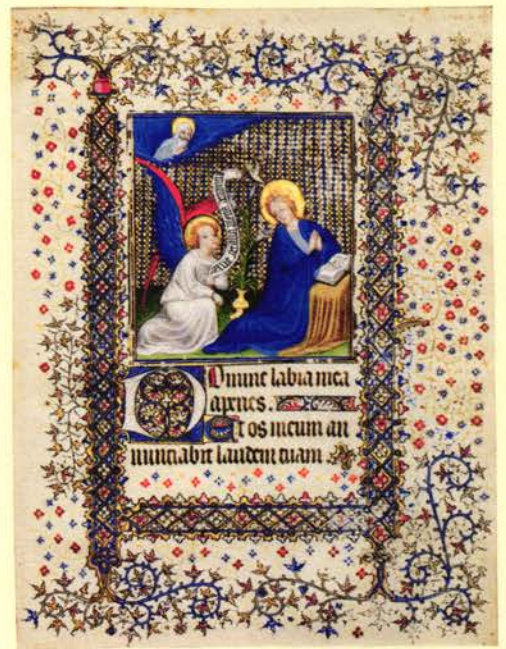 DOmine labia mea
aperies.
Et os meum an
nunciabit laudem tuam